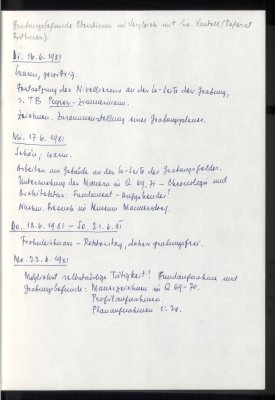 Grabungsbefunde Oberleiserberg im Vergleich mit
Di. 16.6.1981
Warm, gewittrig.
Fortsetzung des Nivellierens an der W-Seite der Grabung,
s. TB Zimmermann.
Zeichnen. Zusammenstellung eines Grabungsplanes.
Mi. 17.6.1981
Schön, warm.
Arbeiten am Gebäude an der W-Seite des Grabungsfeldes.
Untersuchung der Mauern in Q 69, 71 – Chronologie und
Architektur: Fundament – Aufgehendes!
Nachm. Besuch im Museum
Do. 18.6.1981 – So. 21.6.81
Fronleichnam – daher grabungsfrei.
Mo. 22.6.1981
Möglichst selbständige Tätigkeit! Fundaufnahme und
Grabungsbefunde: Mauerzeichnen in Q 69-70.
Profilaufnahmen.
Planaufnahmen 1:20.